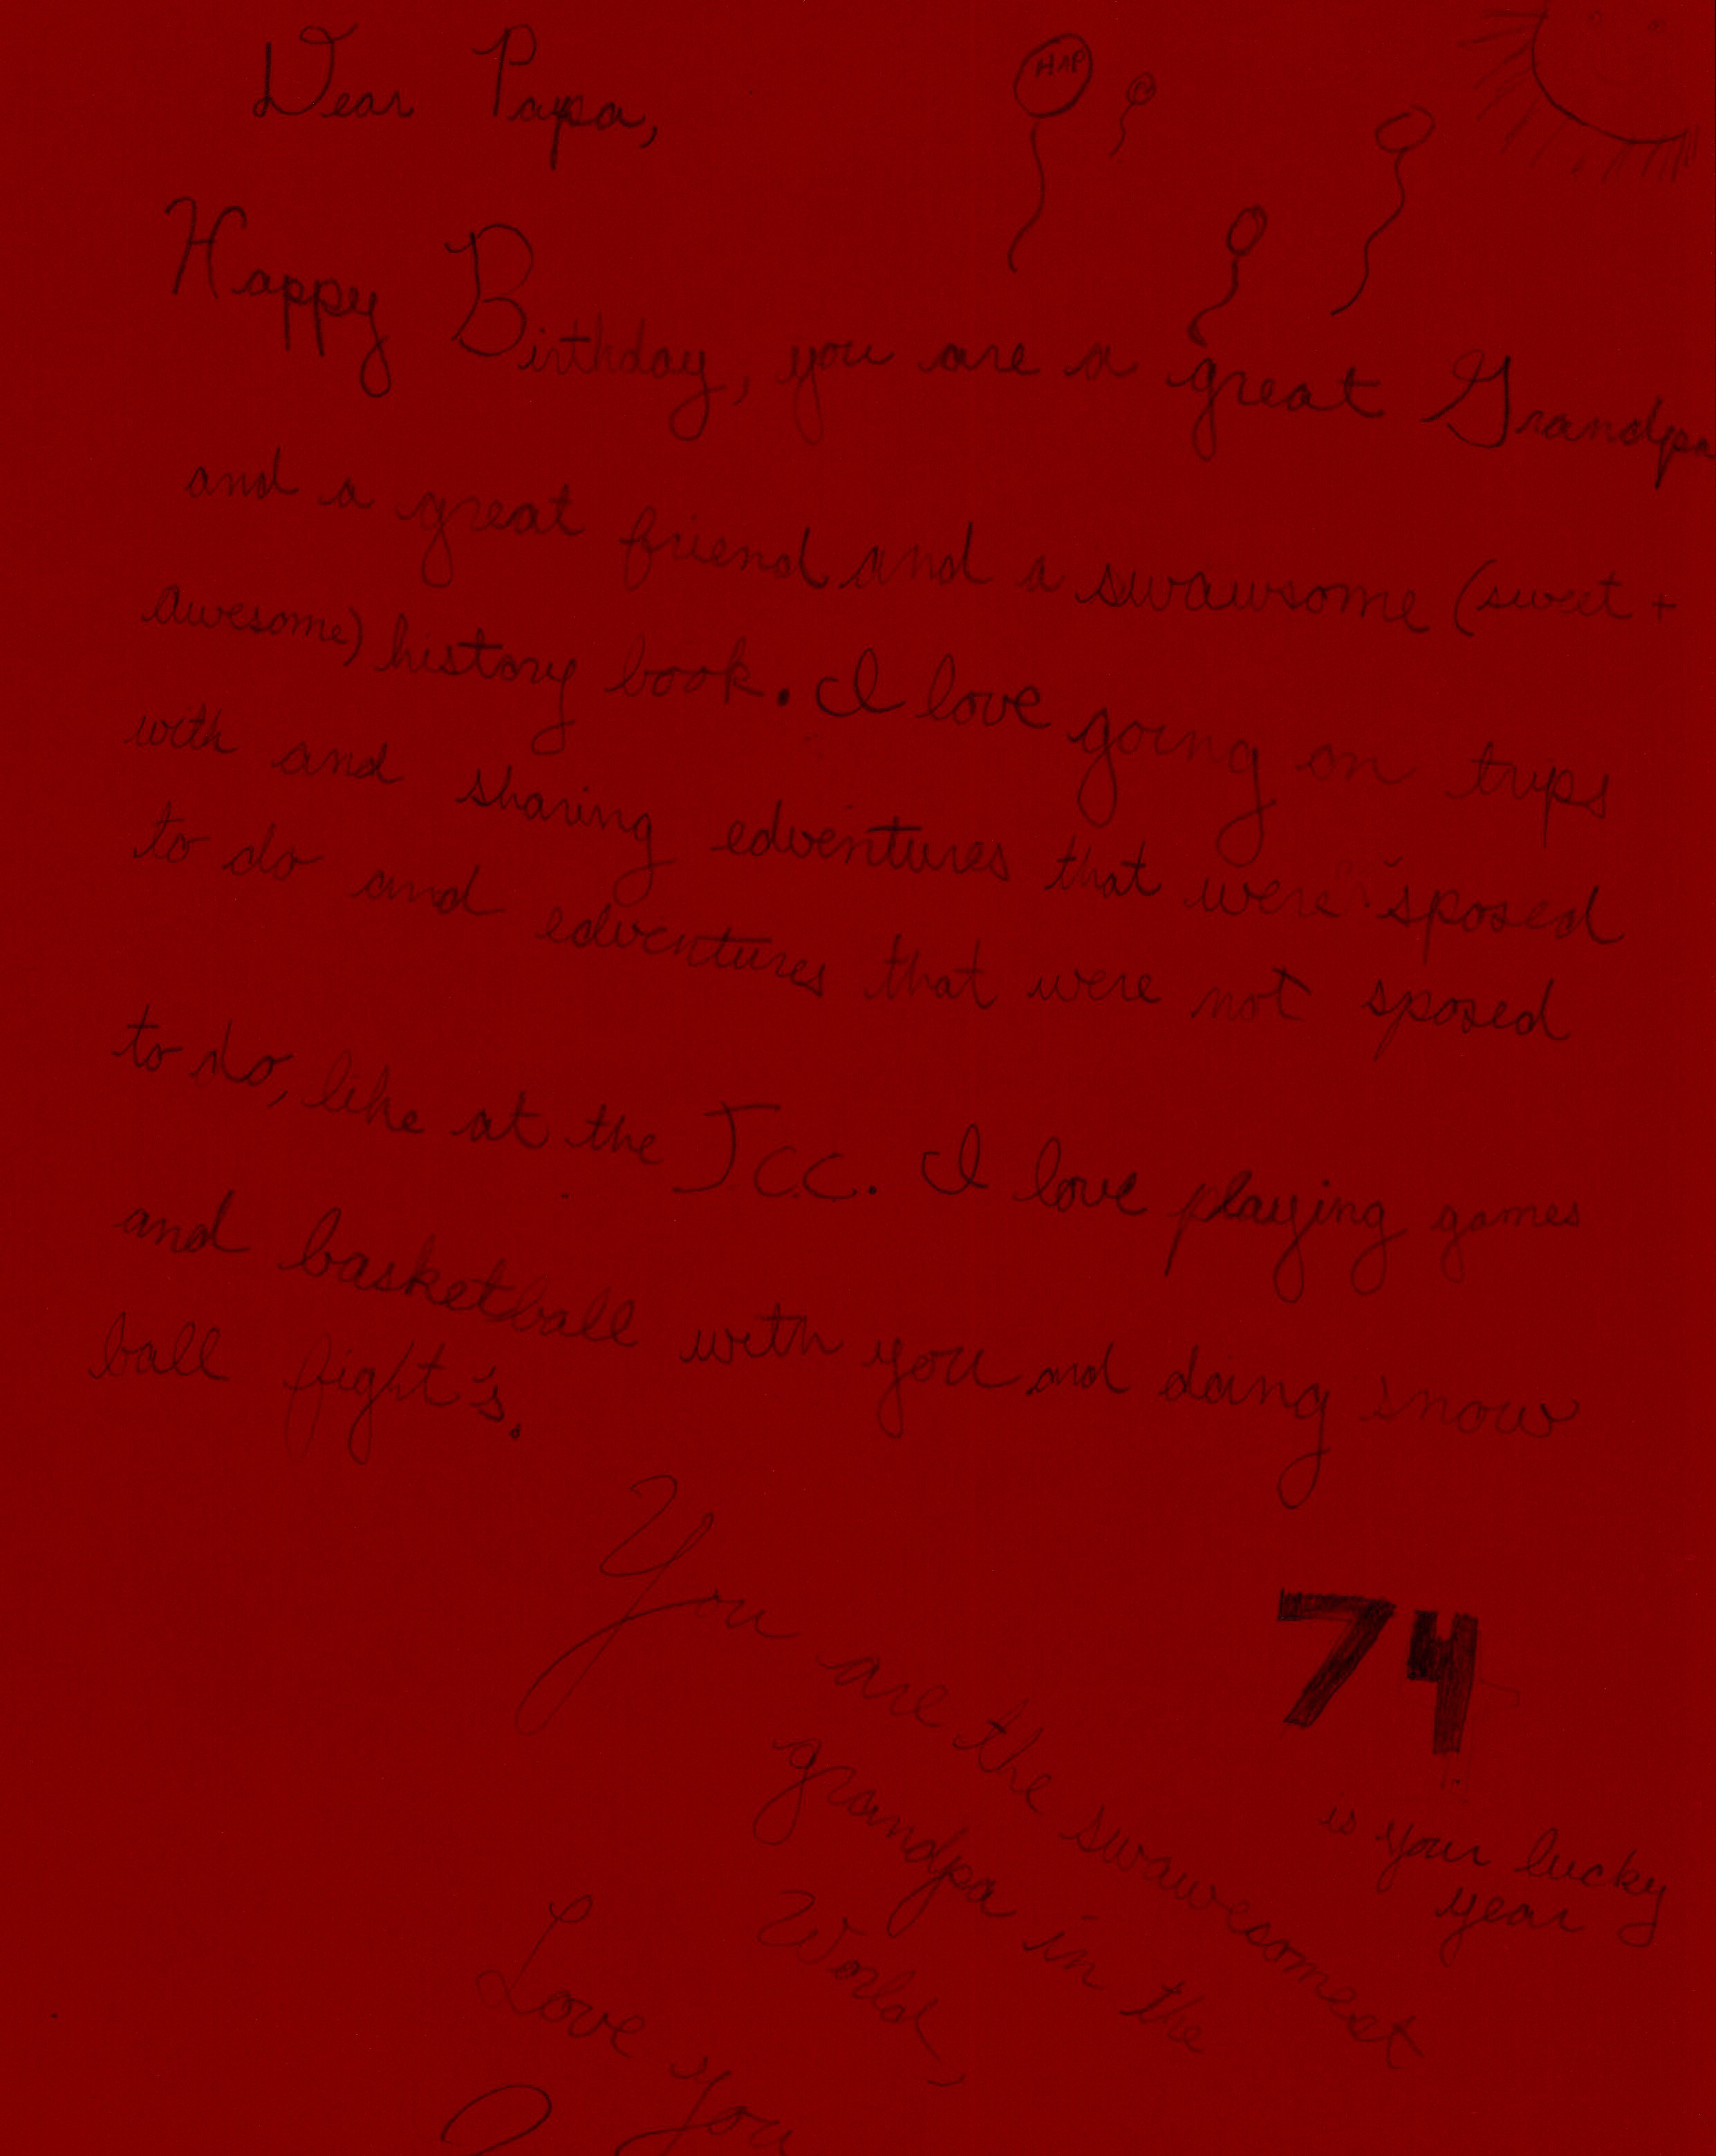 HAP
Dear Papa,
Happy Birthday, you are a great Grandpa
and a great friend and a swawsome (sweet +
awesome) history book. I love going on trips
with and sharing edventures that were sposed
to do and edventures that were not sposed
to do, like at the JCC. I love playing games
and basketball with you and doing snow
ball fight's.
You are the swawesomest
grandpa in the
World,
74
is your lucky
year
Love You